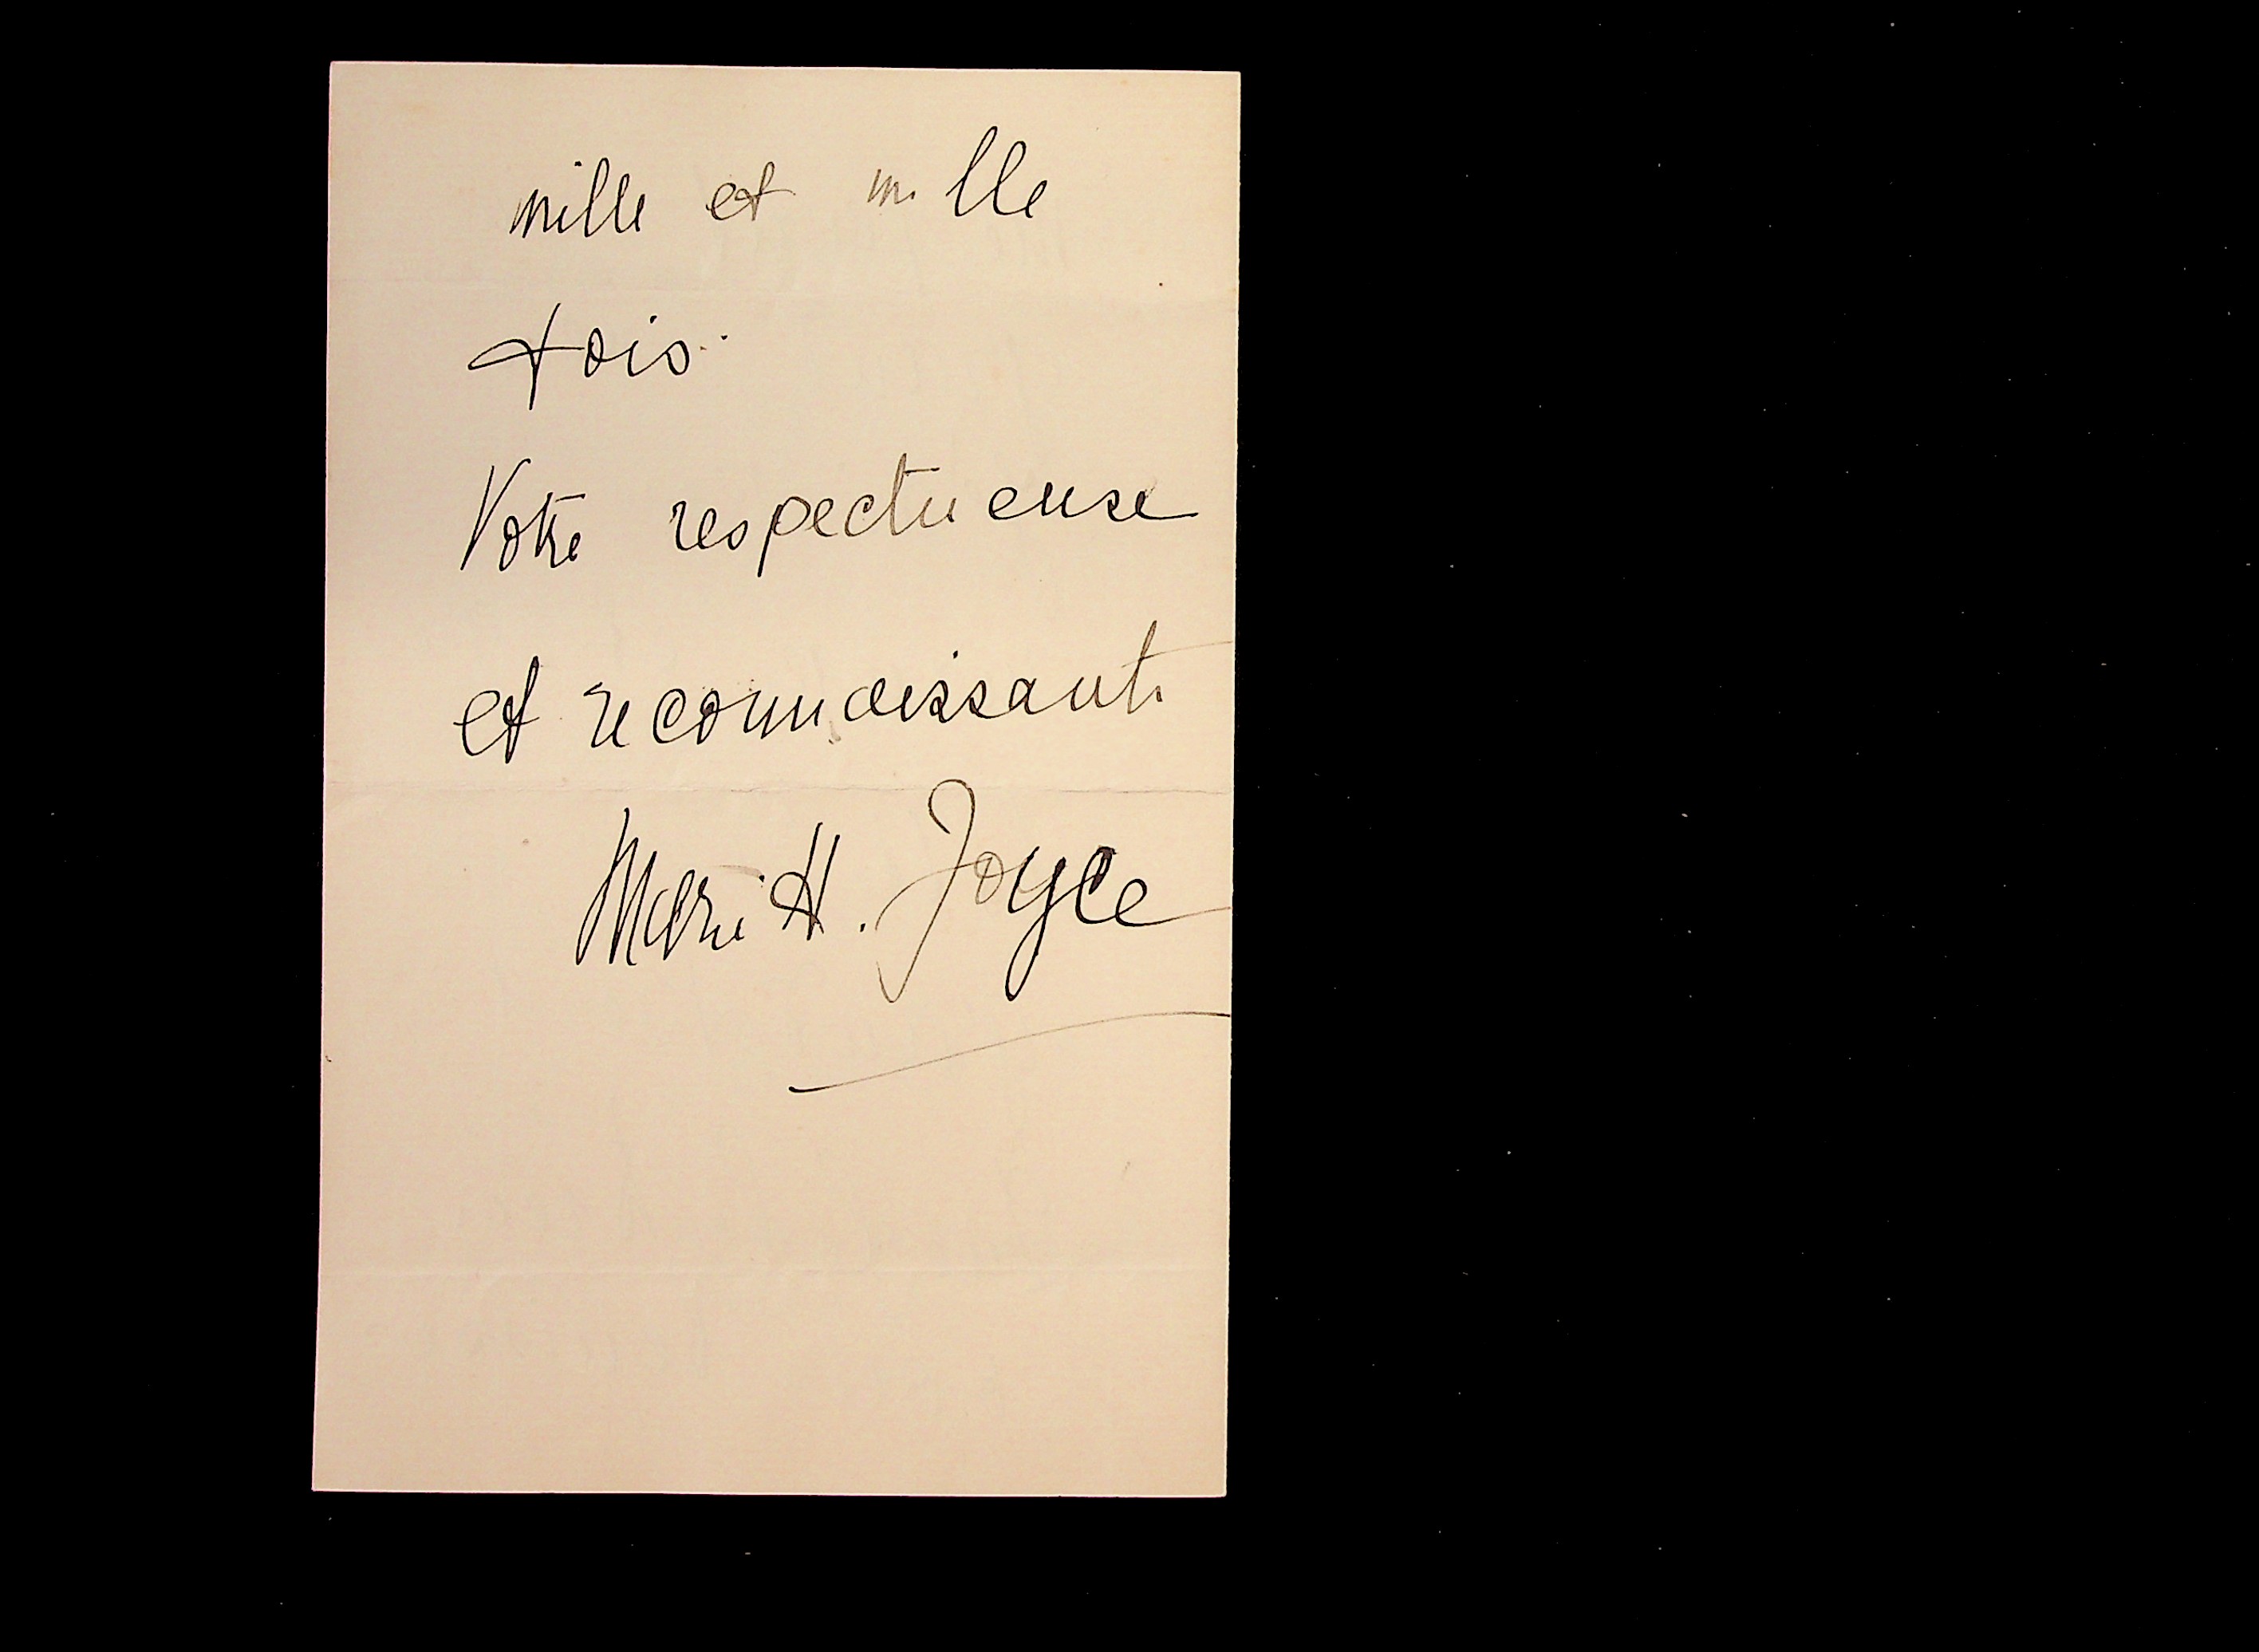 mille et mille
fois.
Votre respectueuse
et reconnaissante
Marie H. Joyce